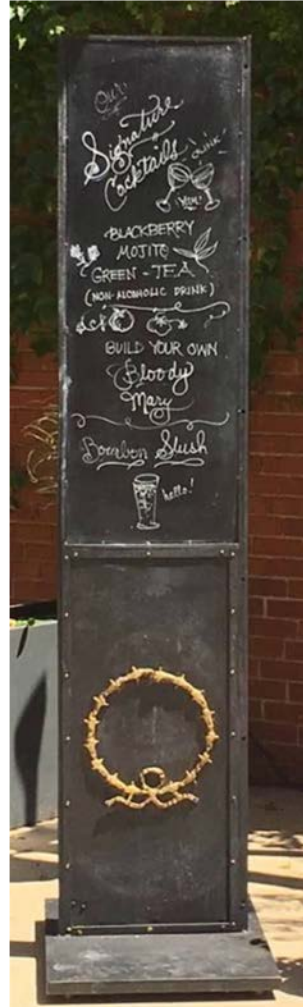 Our
Signature
Cocktails
CLINK!
YUM!
BLACKBERRY
MOJITO
GREEN-TEA
(NON-ALCOHOLIC DRINK)
BUILD YOUR OWN
Bloody
Mary
Bourbon Slush
hello!